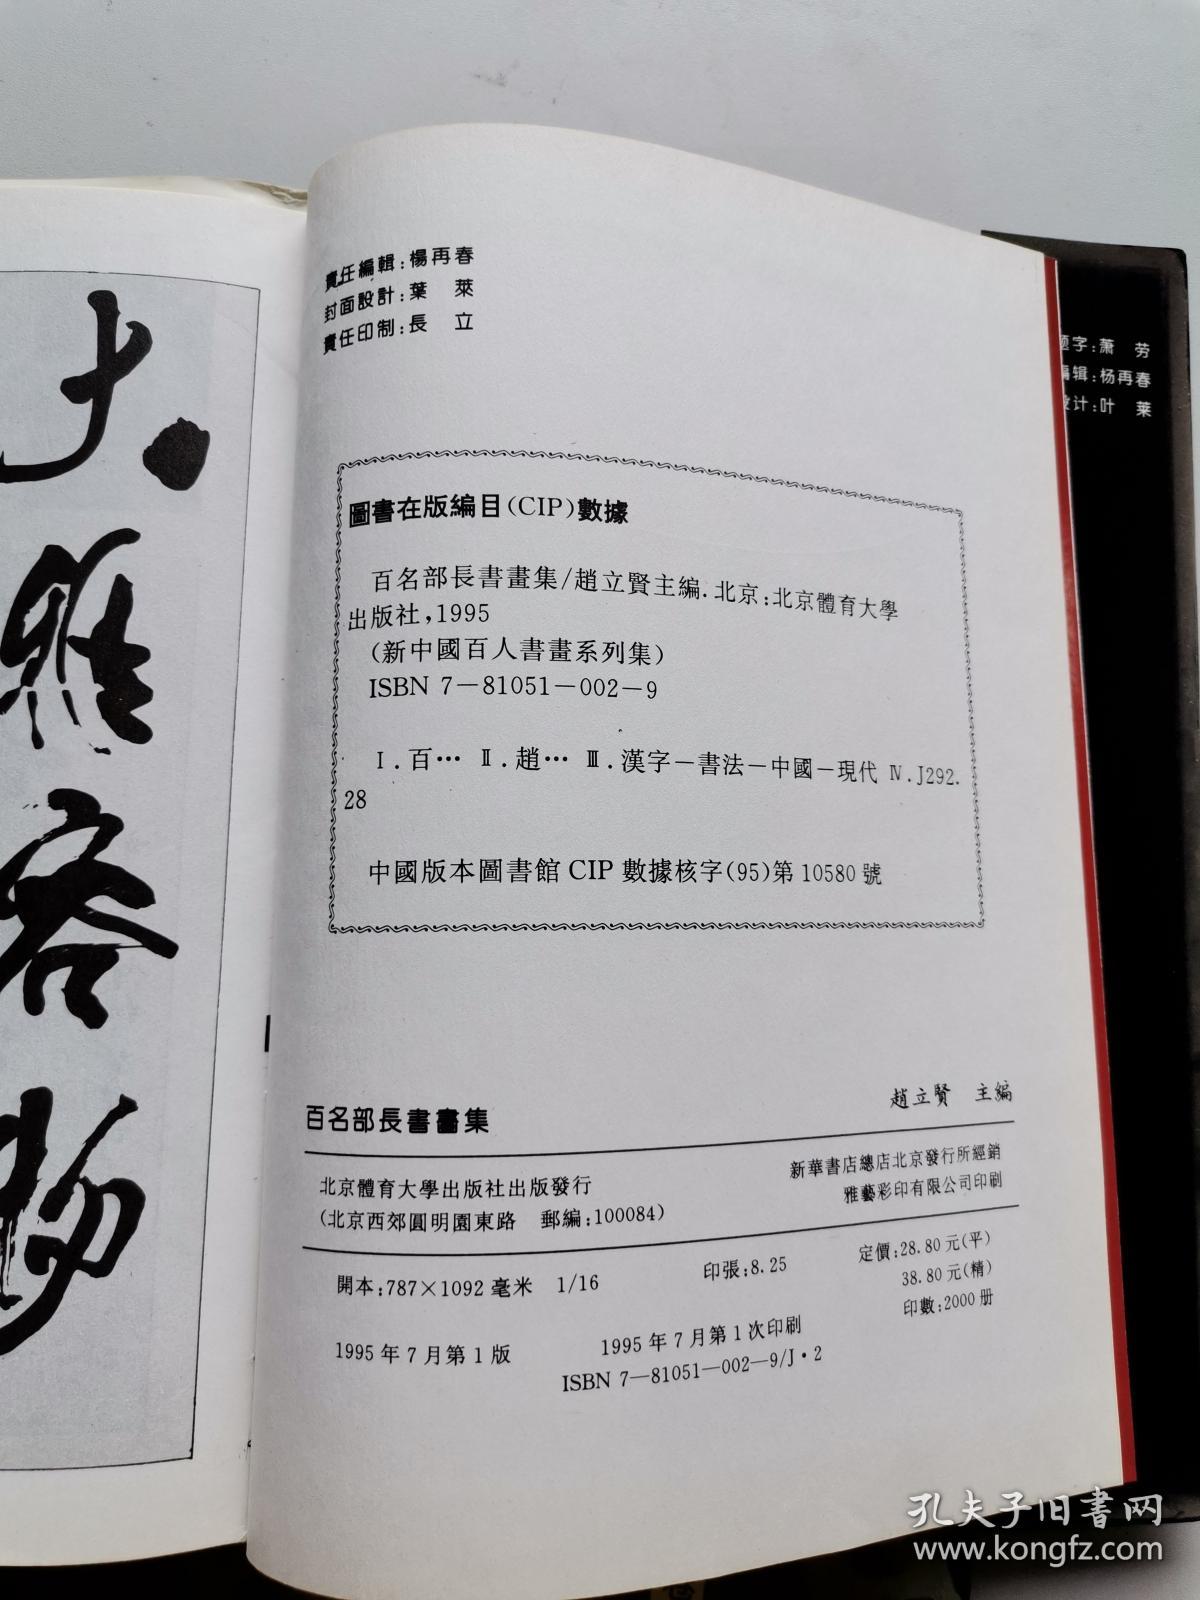 大
雅
容
物
責任編輯:楊再春
封面設計:葉　萊
責任印制:長　立
圖書在版編目(CIP)數據
百名部長書畫集/趙立賢主編.北京:北京體育大學
出版社,1995
(新中國百人書畫系列集)
ISBN 7－81051－002－9
Ⅰ.百… Ⅱ.趙… Ⅲ.漢字－書法－中國－現代 Ⅳ.J292.
28
中國版本圖書館 CIP 數據核字(95)第 10580 號
百名部長書畫集
趙立賢　主編
北京體育大學出版社出版發行
(北京西郊圓明園東路　郵編:100084)
新華書店總店北京發行所經銷
雅藝彩印有限公司印刷
開本:787×1092 毫米　1/16
印張:8.25
定價:28.80 元(平)
38.80 元(精)
印數:2000 册
1995 年 7 月第 1 版
1995 年 7 月第 1 次印刷
ISBN 7—81051—002—9/J·2
题字:萧　劳
编辑:杨再春
设计:叶　莱
孔夫子旧书网
www.kongfz.com